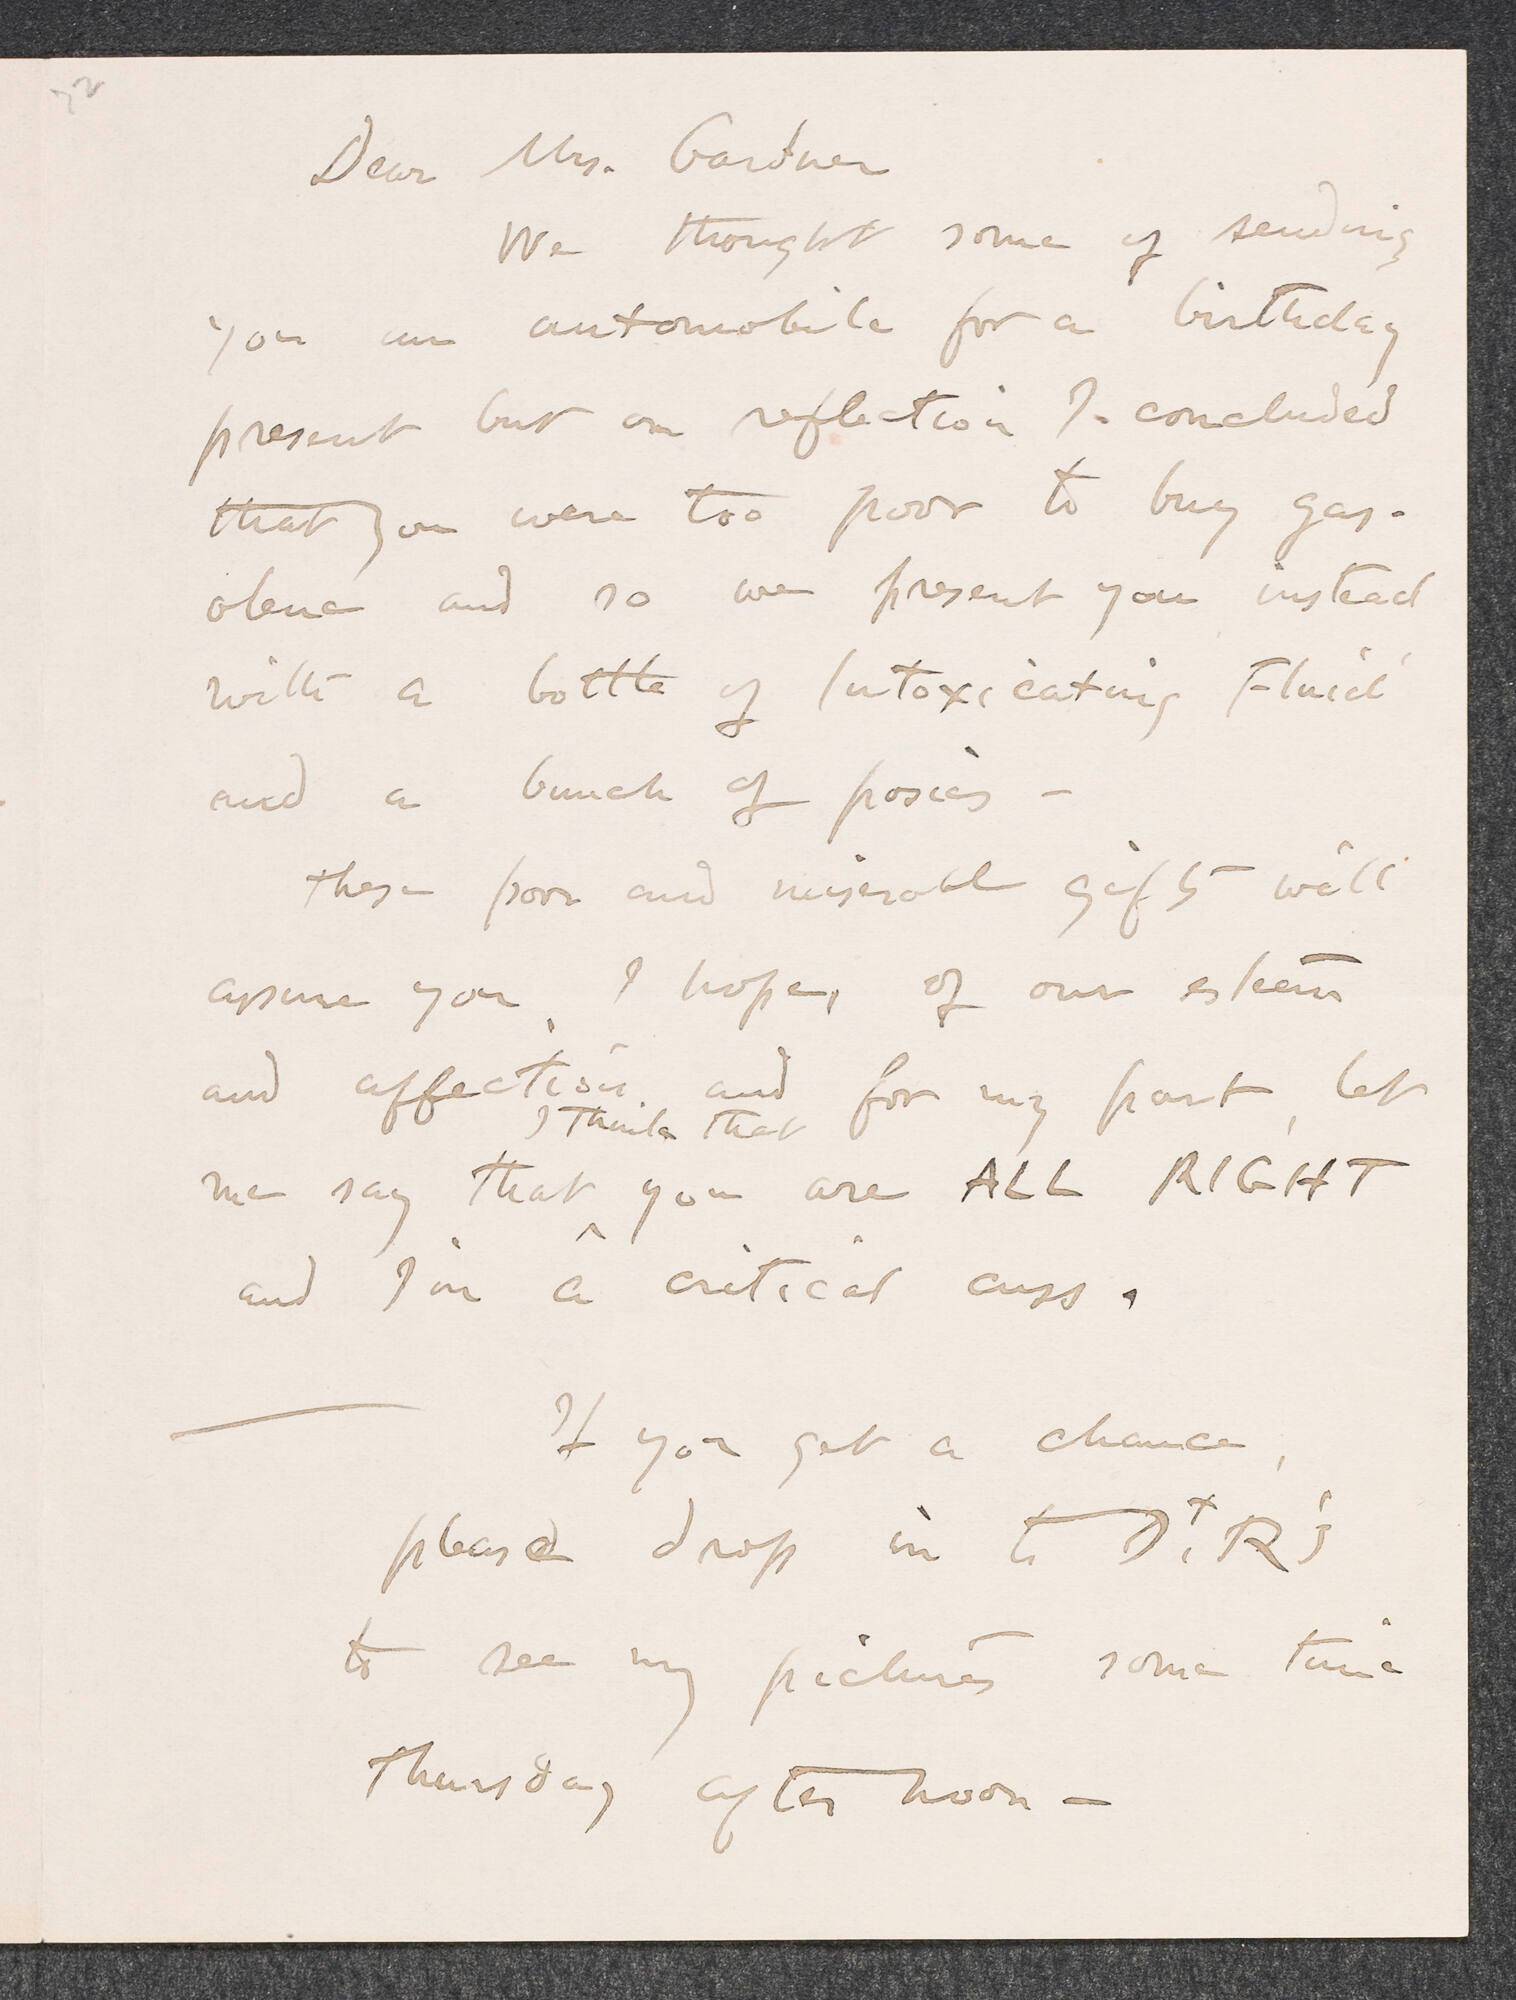 72
Dear Mrs. Gardner
We thought some of sending
you an automobile for a birthday
present but on reflection I concluded
that you were too poor to buy gas-
olene and so we present you instead
with a bottle of Intoxicating Fluid
and a bunch of posies -
These poor and miserable gifts will
assure you, I hope, of our esteem
and affection, and for my part, let
I think that
me say that ^ you are ALL RIGHT
and I'm a critical cuss.
If you get a chance,
please drop in to D + R's
to see my pictures some time
Thursday afternoon -